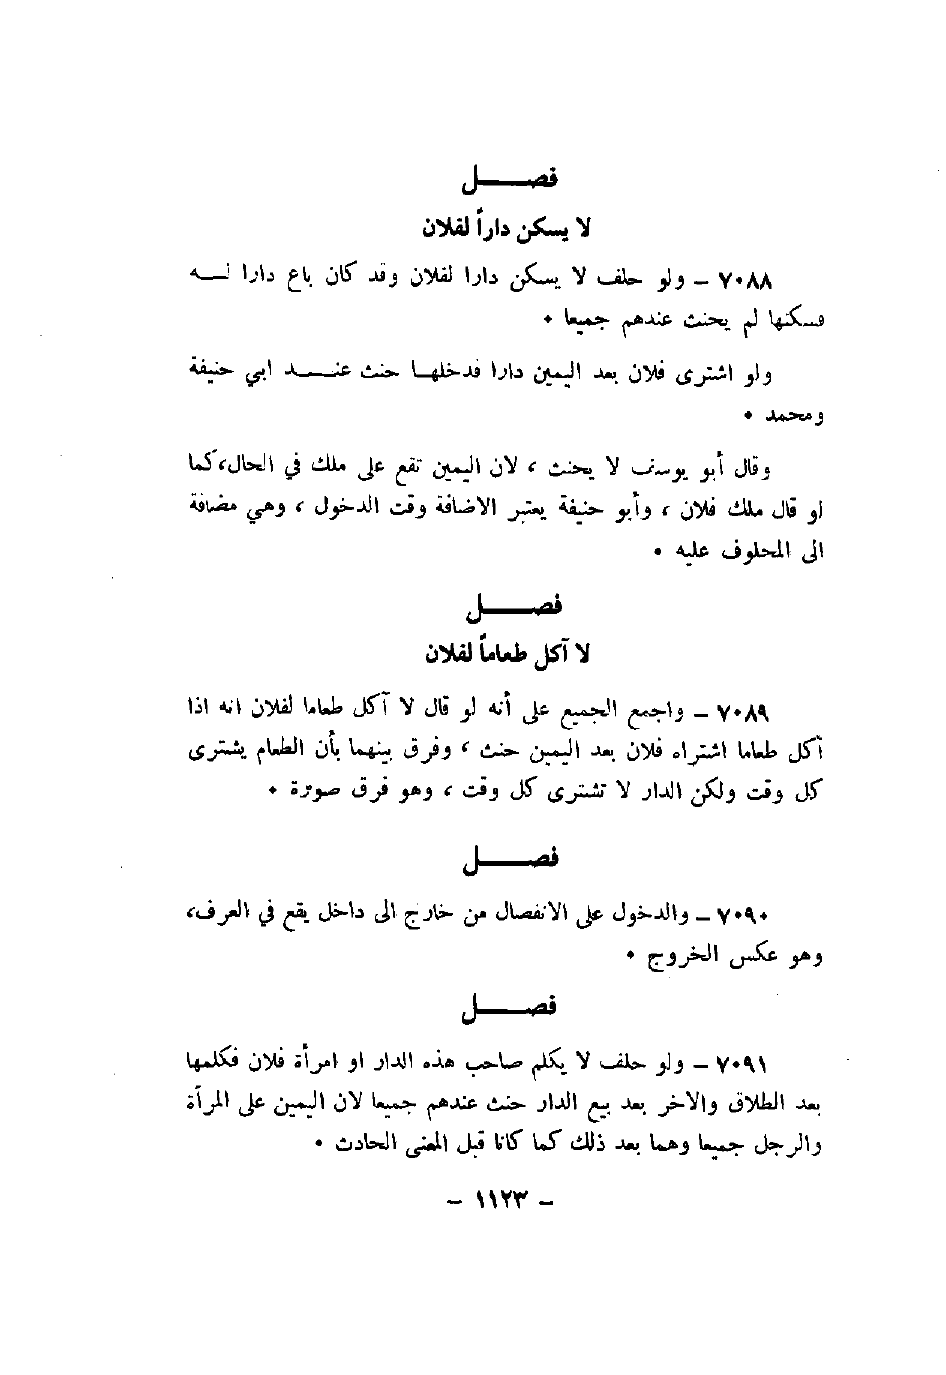 فصـــــل
لا يسكن داراً لفلان
٧٠٨٨ – ولو حلف لا يسكن دارا لفلان وقد كان باع دارا لـــه
فسكنها لم يحنث عندهم جميعا ٠
ولو اشترى فلان بعد اليمين دارا فدخلهـا حنث عنـــد ابي حنيفة
ومحمد ٠
وقال أبو يوسف لا يحنث ، لان اليمين تقع على ملك في الحال، كما
او قال ملك فلان ، وأبو حنيفة يعتبر الاضافة وقت الدخول ، وهي مضافة
الى المحلوف عليه ٠
فصـــــل
لا آكل طعاماً لفلان
٧٠٨٩ – واجمع الجميع على أنه لو قال لا آكل طعاما لفلان انه اذا
أكل طعاما اشتراه فلان بعد اليمين حنث ، وفرق بينهما بأن الطعام يشترى
كل وقت ولكن الدار لا تشترى كل وقت ، وهو فرق صورة ٠
فصـــــل
٧٠٩٠ – والدخول على الانفصال من خارج الى داخل يقع في العرف،
وهو عكس الخروج ٠
فصـــــل
٧٠٩١ – ولو حلف لا يكلم صاحب هذه الدار او امرأة فلان فكلمها
بعد الطلاق والاخر بعد بيع الدار حنث عندهم جميعا لان اليمين على المرأة
والرجل جميعا وهما بعد ذلك كما كانا قبل المعنى الحادث ٠
– ١١٢٣ –